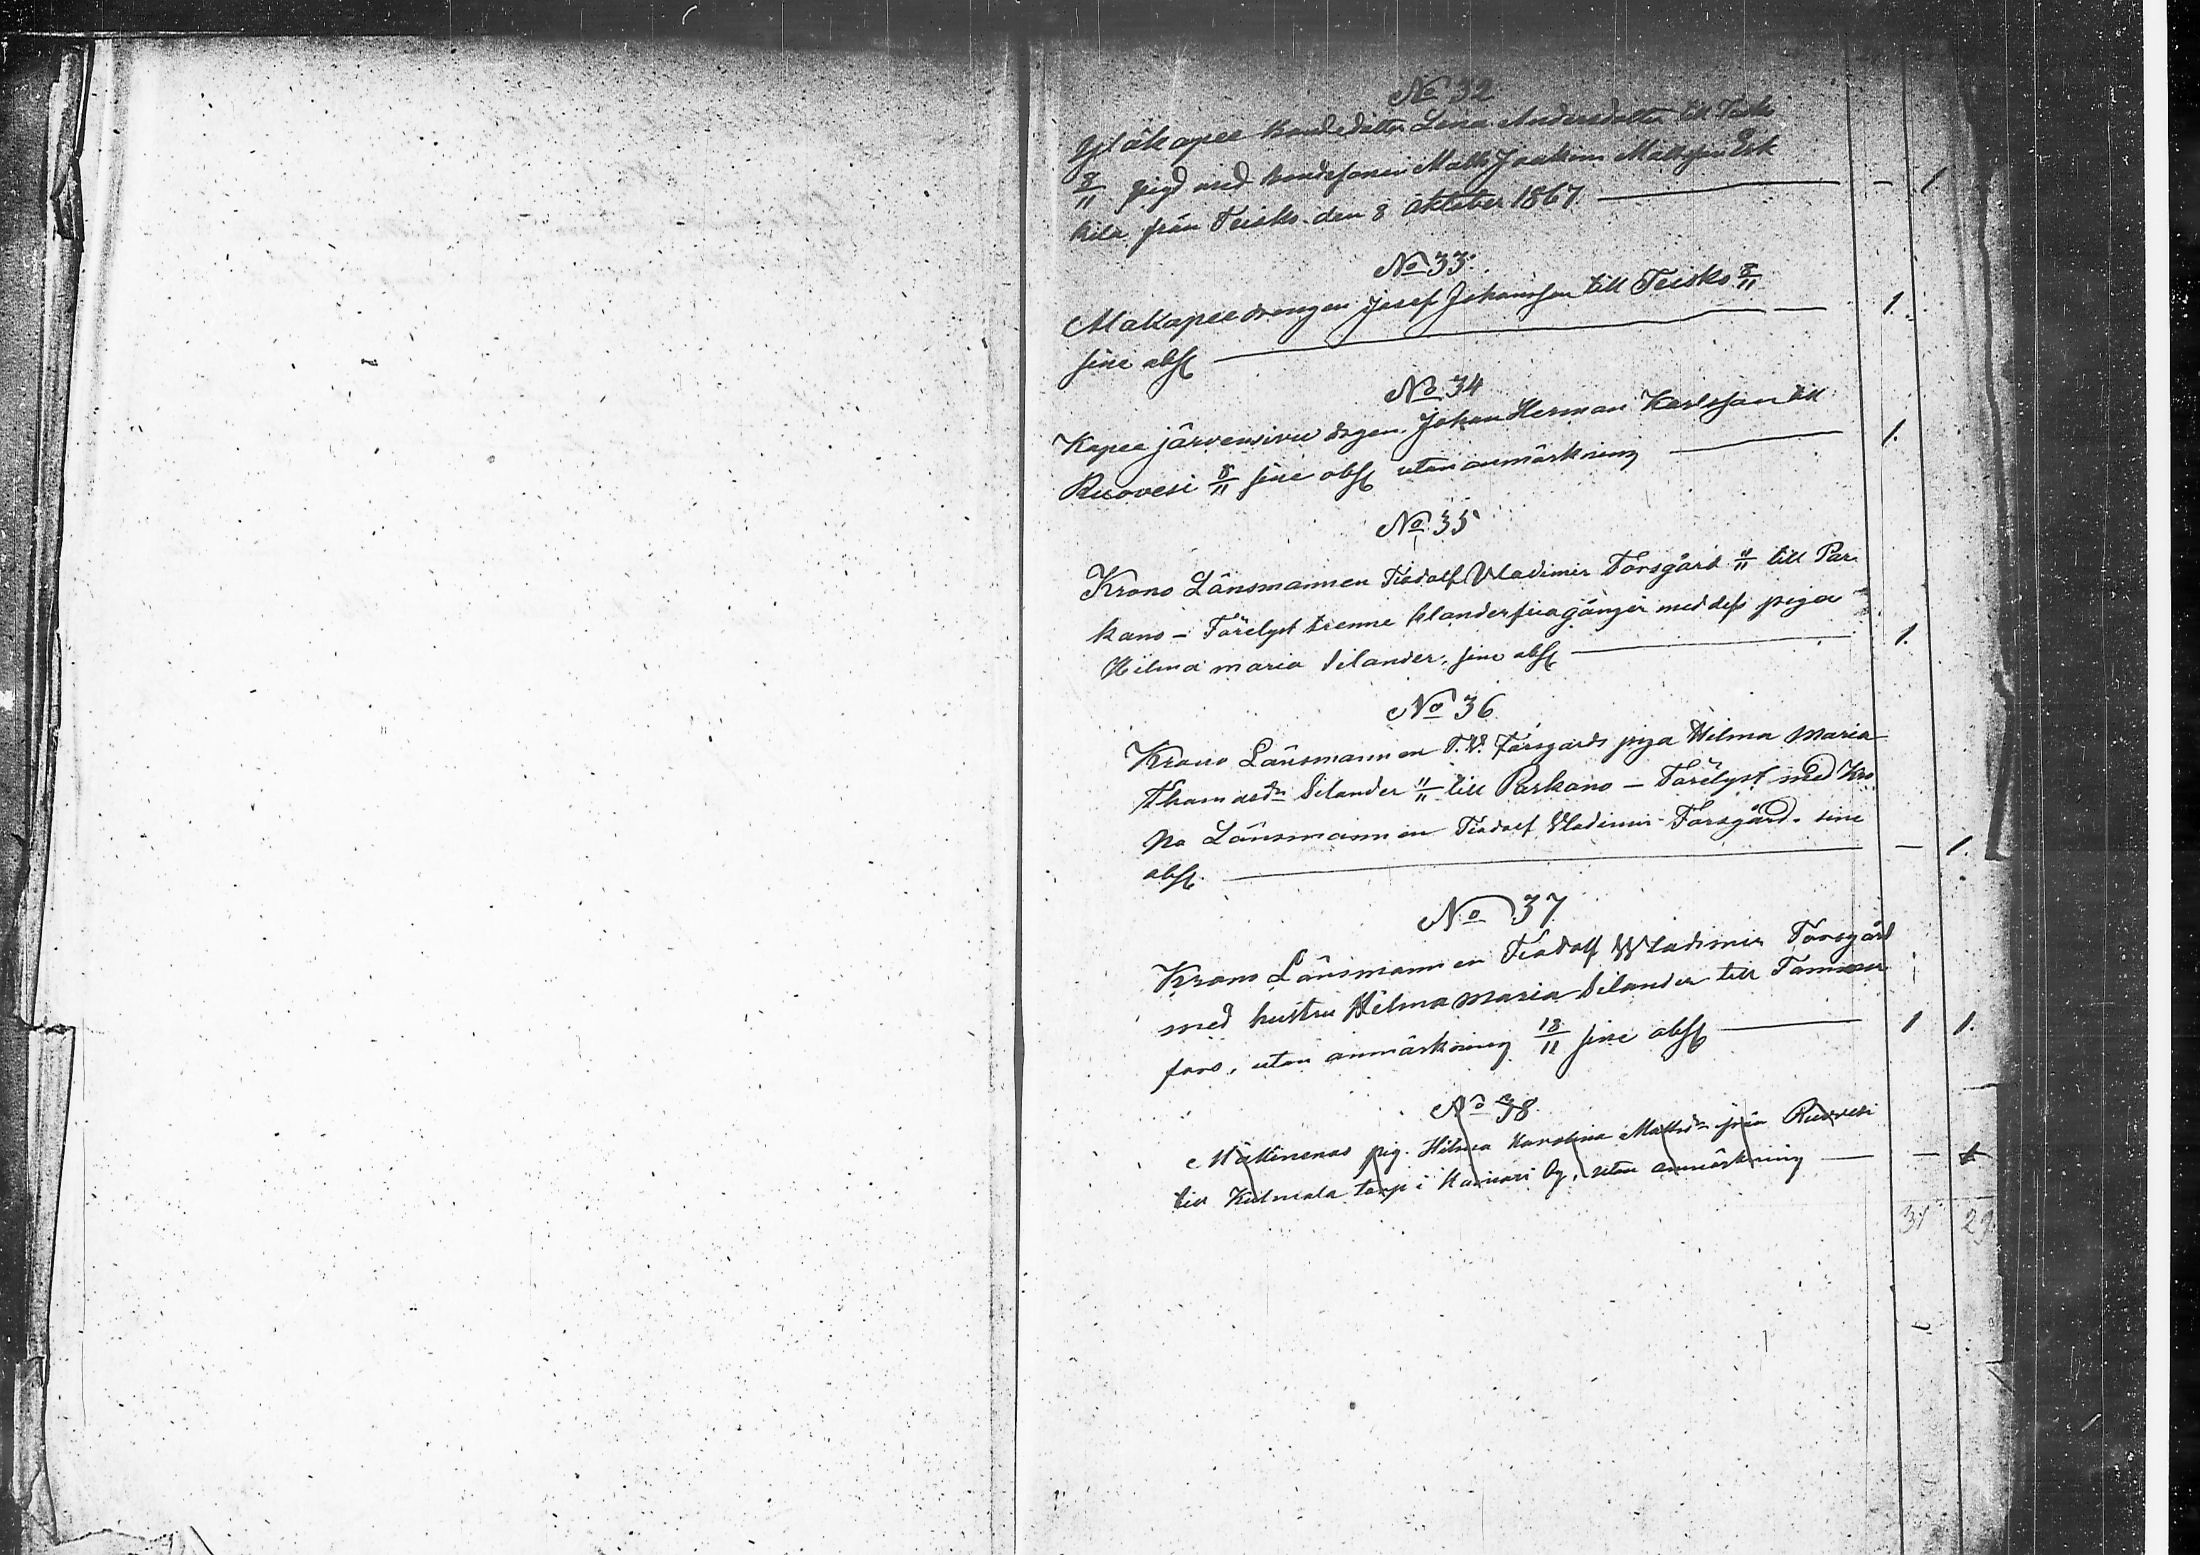 No 32
Yläkapee Bondedottr Lena Andersdotter till Teisko
8/11 vigd med bondesonen Matts Joakim Mattsson Esk
kila från Teisko den 8 Oktober 1867 — – 1
No 33.
Alakapee drengen Josef Johansson till Teisko 8/11
sine absl — 1.
No 34
Kapee järvensivu drgen Johan Herman Karlsson till
Ruovesi 8/11 sine absl utan anmärkning — 1.
No 35
Krono Länsmannen Teodolf Vladimir Forsgård 11/11 till Par
kano – Förelyst trenne klanderfria gånger med dess piga
Hilma maria Silander, sine absl — 1.
No 36
Krono Länsmannen T. V. Forsgårds piga Hilma Maria
Thomasdr Silander 11/11 till Parkano – Förelyst med Kro
no Länsmannen Teodolf Vladimir Forsgård. sine
absl. — – 1.
No 37
Krono Länsmannen Teodolf Wladimir Forsgård
med hustru Hilma Maria Silander till Tammer
fors, utan anmärkning 18/11 sine absl — 1 1.
No 38
Mäkinenas pig. Hilma Karolina Mattsdr från Ruovesi
till Kulmala torp i by, utan anmärkning — – 1
31 29